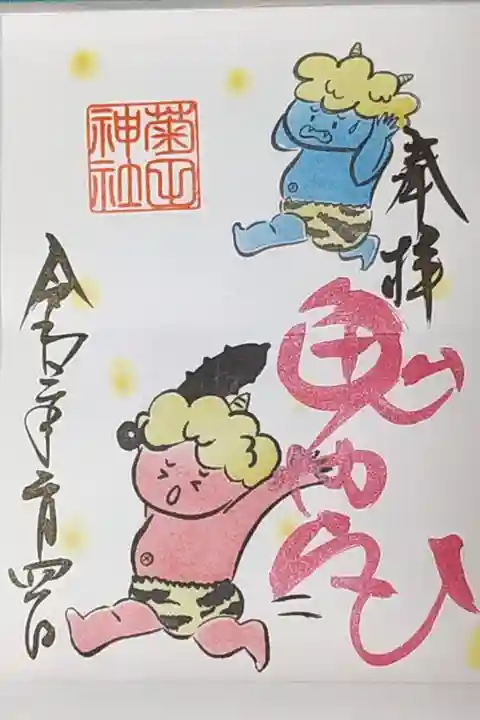 奉拝
鬼やらひ
菊田
神社
令和二年二月四日